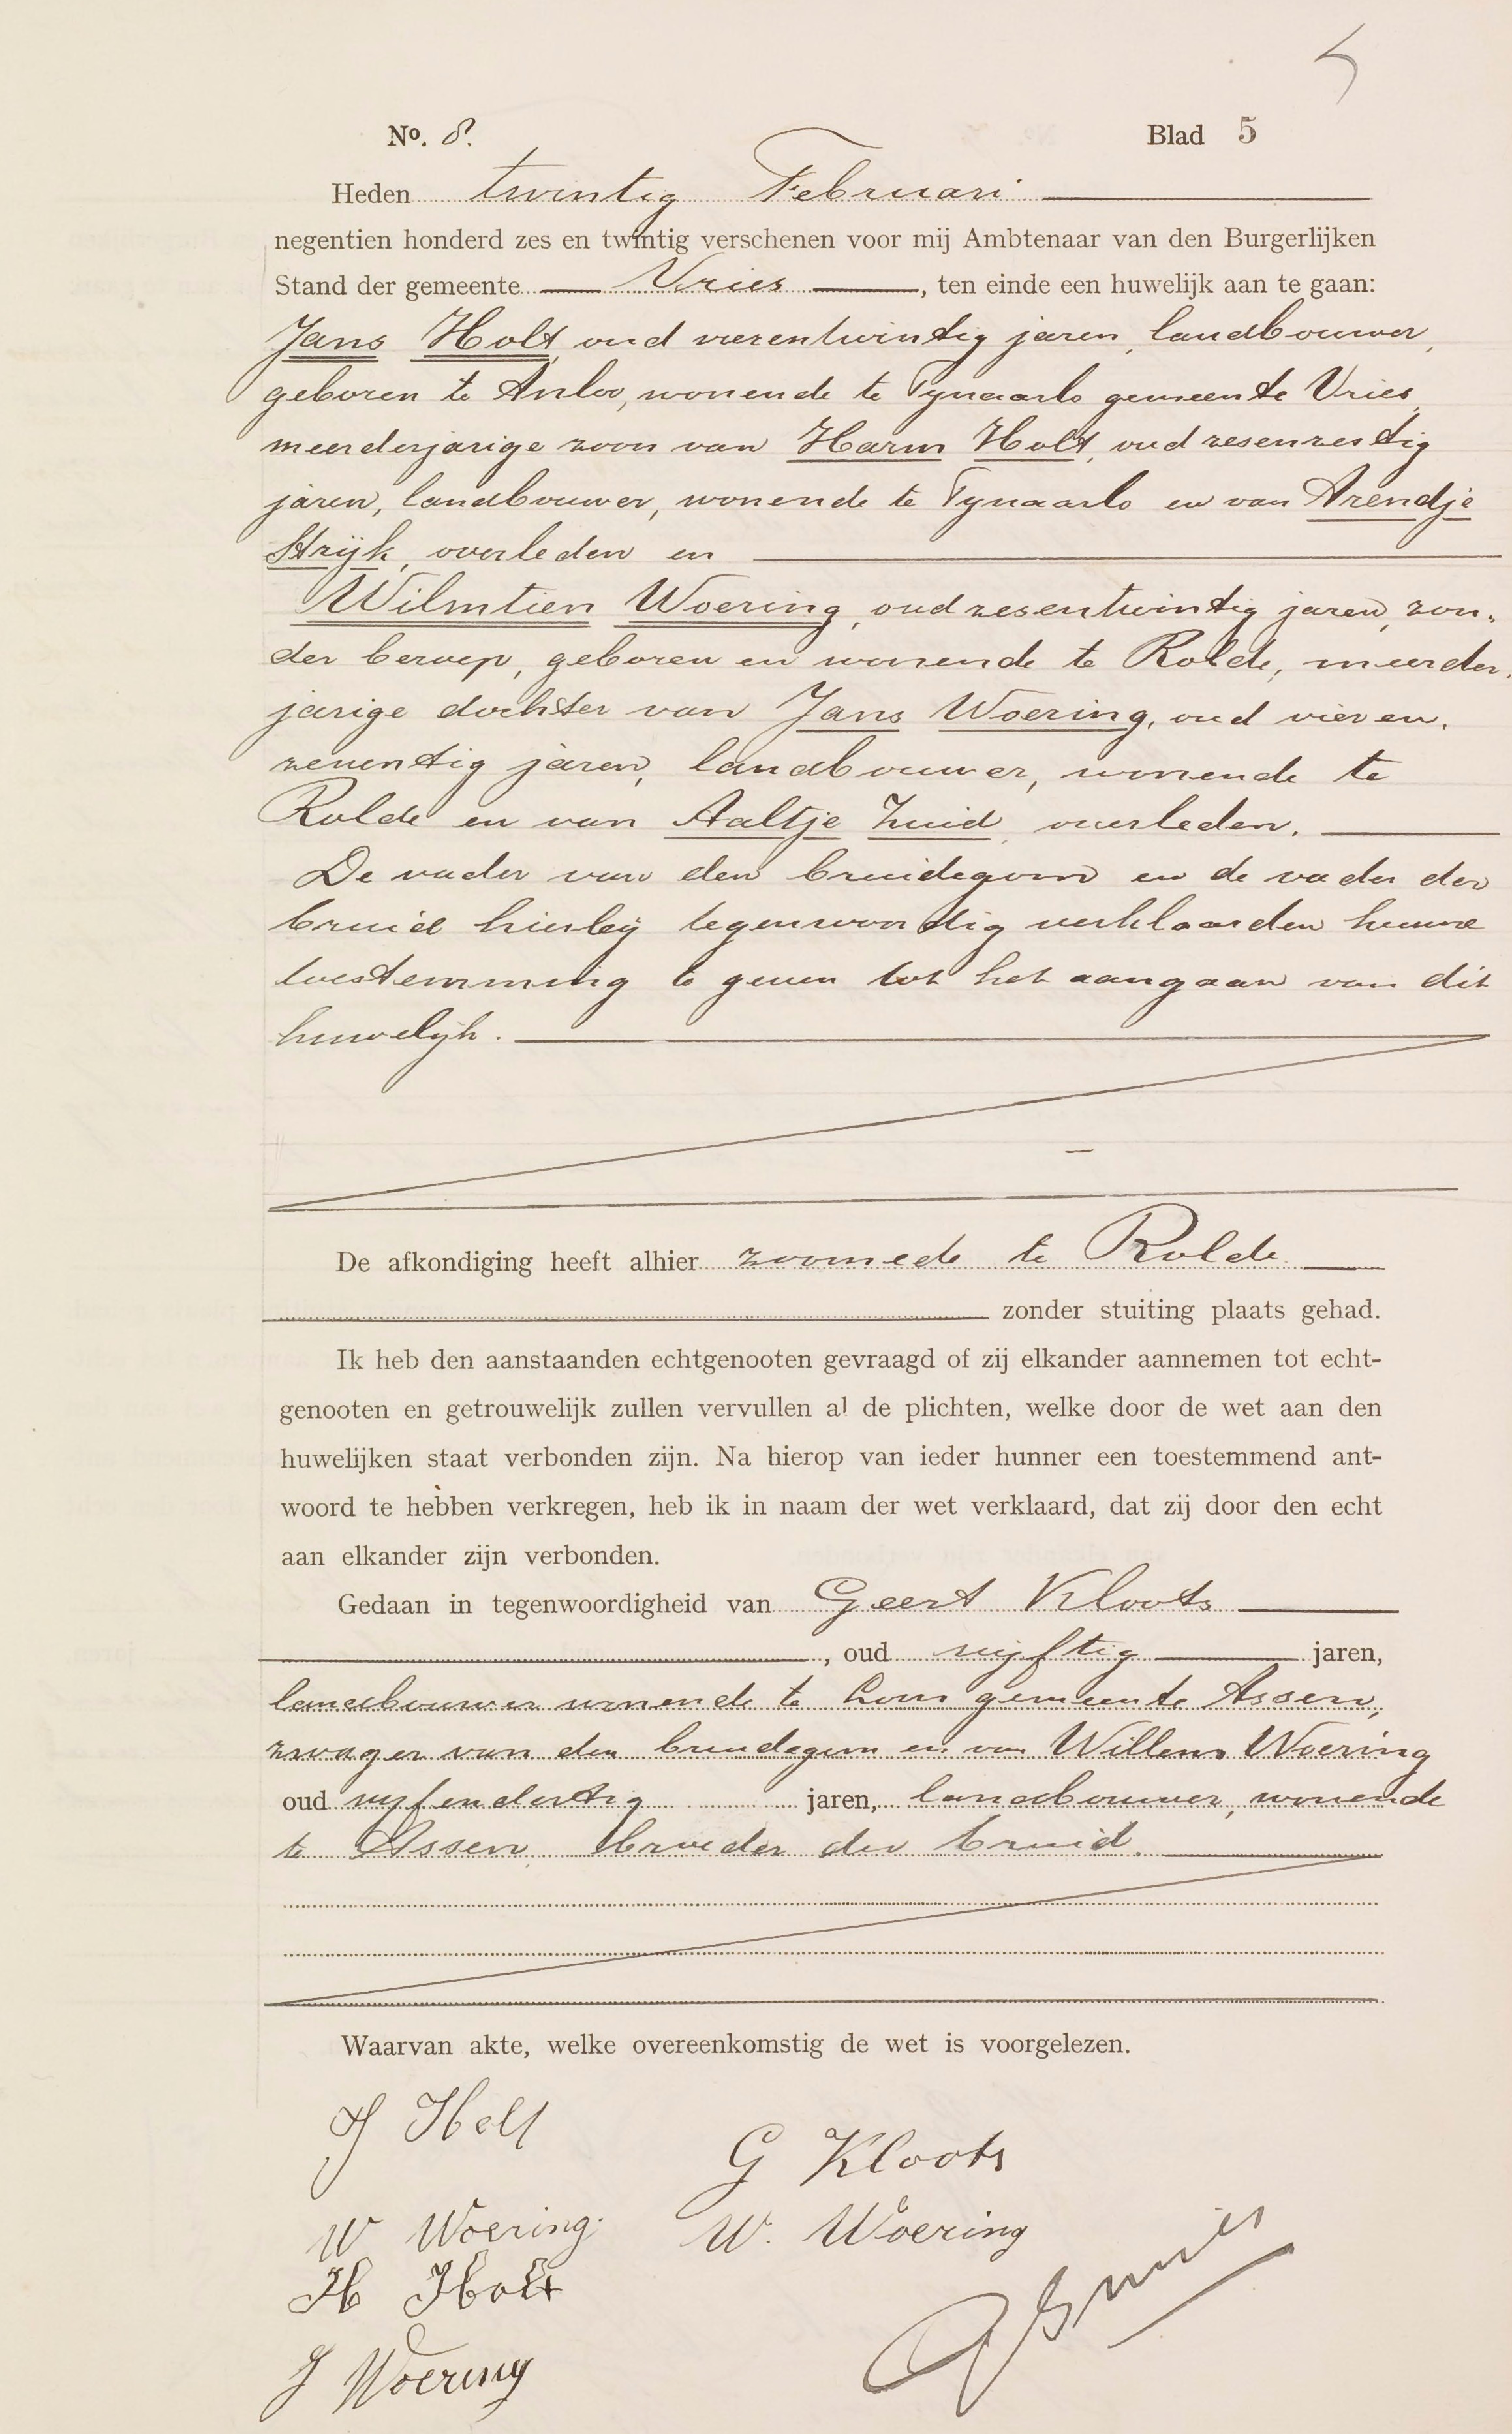 5
No. 8. Blad 5
Heden twintig Februari
negentien honderd zes en twintig verschenen voor mij Ambtenaar van den Burgerlijken
Stand der gemeente Vries, ten einde een huwelijk aan te gaan:
Jans Holt, oud vierentwintig jaren, landbouwer,
geboren te Anloo, wonende te Tynaarlo gemeente Vries,
meerderjarige zoon van Harm Holt, oud zesenzestig
jaren, landbouwer, wonende te Tynaarlo en van Arendje
Strijk, overleden en
Wilmtien Woering, oud zesentwintig jaren, zon-
der beroep, geboren en wonende te Rolde, meerder-
jarige dochter van Jans Woering, oud vieren-
zeventig jaren, landbouwer, wonende te
Rolde en van Aaltje Zuid, overleden.
De vader van den bruidegom en de vader der
bruid hierbij tegenwoordig verklaarden hunne
toestemming te geven tot het aangaan van dit
huwelijk.
De afkondiging heeft alhier zoomede te Rolde
zonder stuiting plaats gehad.
Ik heb den aanstaanden echtgenooten gevraagd of zij elkander aannemen tot echt-
genooten en getrouwelijk zullen vervullen al de plichten, welke door de wet aan den
huwelijken staat verbonden zijn. Na hierop van ieder hunner een toestemmend ant-
woord te hebben verkregen, heb ik in naam der wet verklaard, dat zij door den echt
aan elkander zijn verbonden.
Gedaan in tegenwoordigheid van Geert Kloots
, oud vijftig jaren,
landbouwer wonende te Loon gemeente Assen,
zwager van den bruidegom en van Willem Woering
oud vijfendertig jaren, landbouwer, wonende
te Assen, broeder der bruid.
Waarvan akte, welke overeenkomstig de wet is voorgelezen.
J Holt
G Kloots
W Woering.
W. Woering
H Holt
J Woering